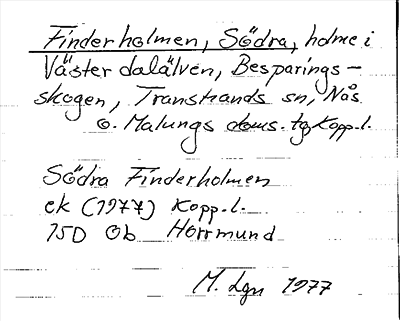 Finderholmen, Södra, holme i
Västerdalälven, Besparings-
skogen, Transtrands sn, Nås
o. Malungs doms. tg Kopp. l.
Södra Finderholmen
ek (1977) Kopp. l.
15D Ob Horrmund
M. Lgn 1977